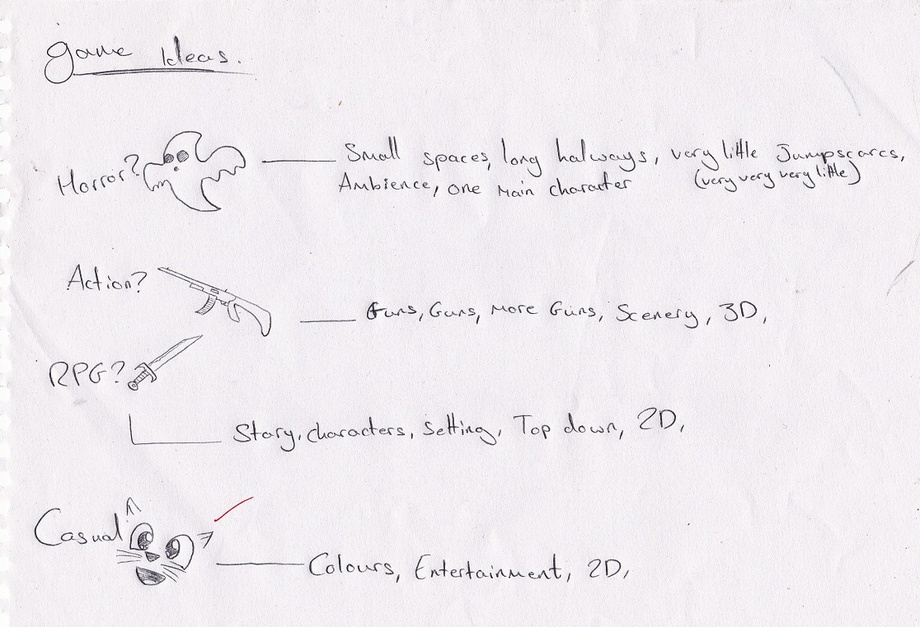 Game Ideas.
Horror? Small spaces, long halways, very little Jumpscares,
Ambience, one main character (very very very little)
Action? Guns, Guns, More Guns, Scenery, 3D,
RPG?
Story, characters, setting, Top down, 2D,
Casual
Colours, Entertainment, 2D,